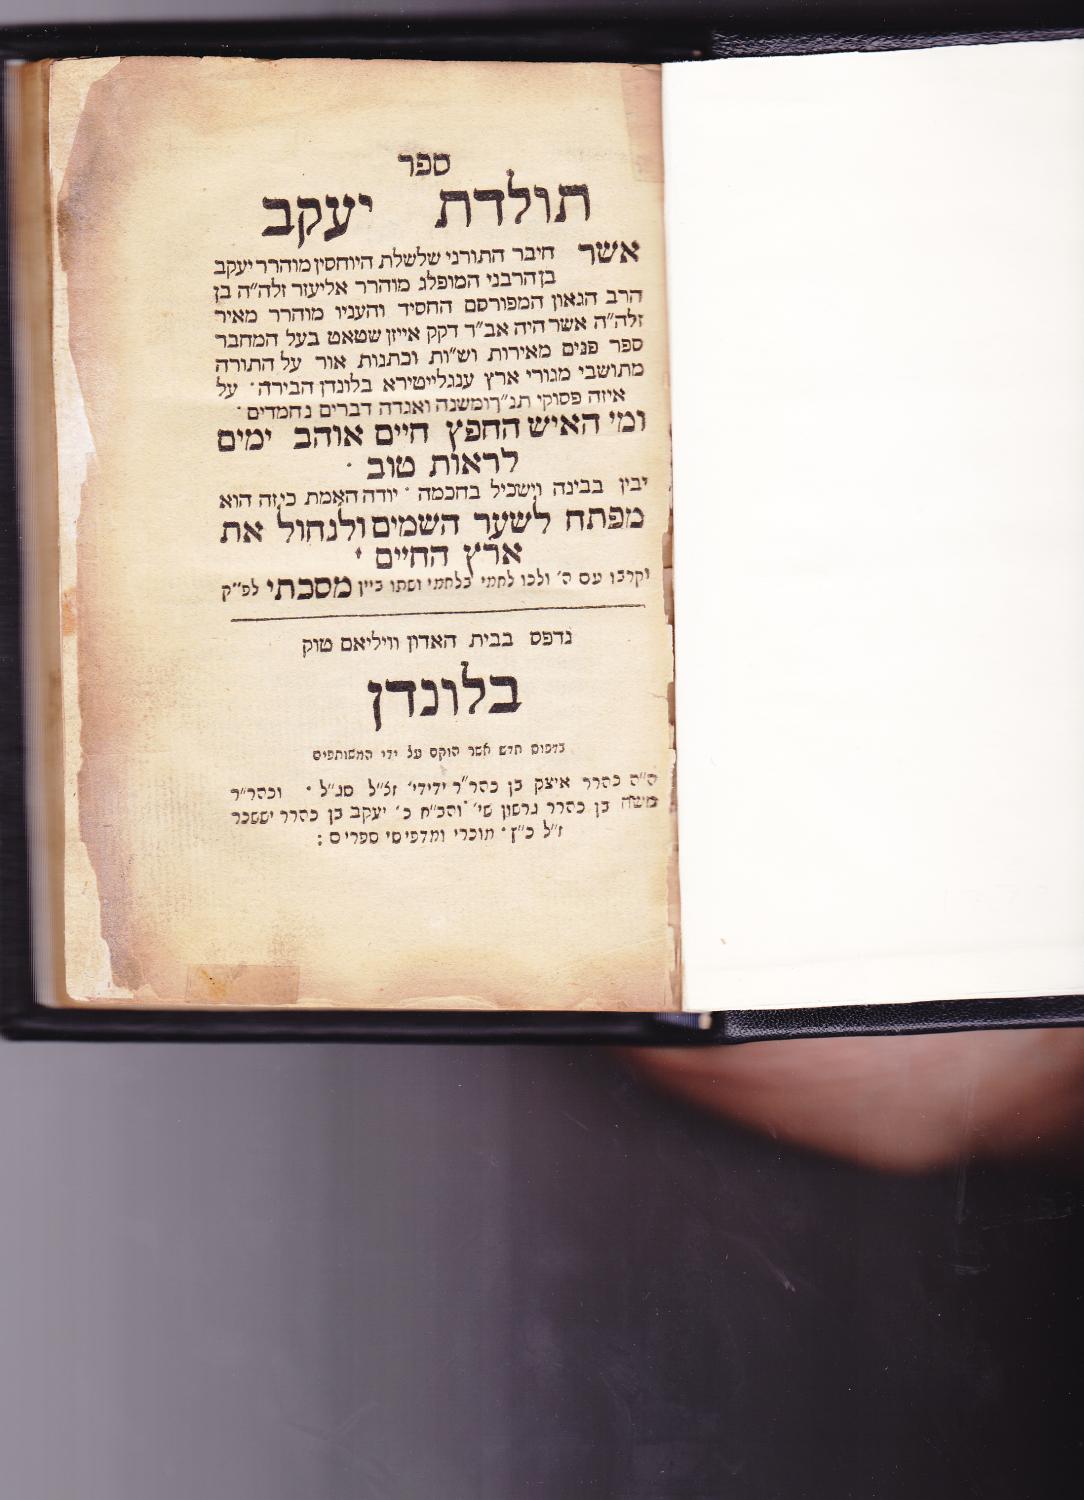 ספר
תולדת יעקב
אשר חיבר התורני שלשלת היוחסין מוהרר יעקב
בן הרבני המופלג מוהרר אליעזר זלה"ה בן
הרב הגאון המפורסם החסיד והעניו מוהרר מאיר
זלה"ה אשר היה אב"ד דקק אייזן שטאט בעל המחבר
ספר פנים מאירות וש"ות וכתנות אור על התורה
מתושבי מגורי ארץ ענגלייטירא בלונדן הבירה · על
איזה פסוקי תנ"ך ומשנה ואגדה דברים נחמדים ·
ומי האיש החפץ חיים אוהב ימים
לראות טוב ·
יבין בבינה וישכיל בחכמה · יודה האמת כי זה הוא
מפתח לשער השמים ולנחול את
ארץ החיים ·
וקרבו עם ה' ולכו לחמי בלחמי ושתו ביין מסכתי לפ"ק
נדפס בבית האדון וויליאם טוק
בלונדן
בדפוס חדש אשר הוקם על ידי המשותפים
ה"ה כהרר איצק בן כהר"ר ידידי' זצ"ל סג"ל · וכהר"ר
משה בן כהרר גרשון שי' והכ"ח כ' יעקב בן כהרר יששכר
ז"ל כ"ץ · מוכרי ומדפיסי ספרים :